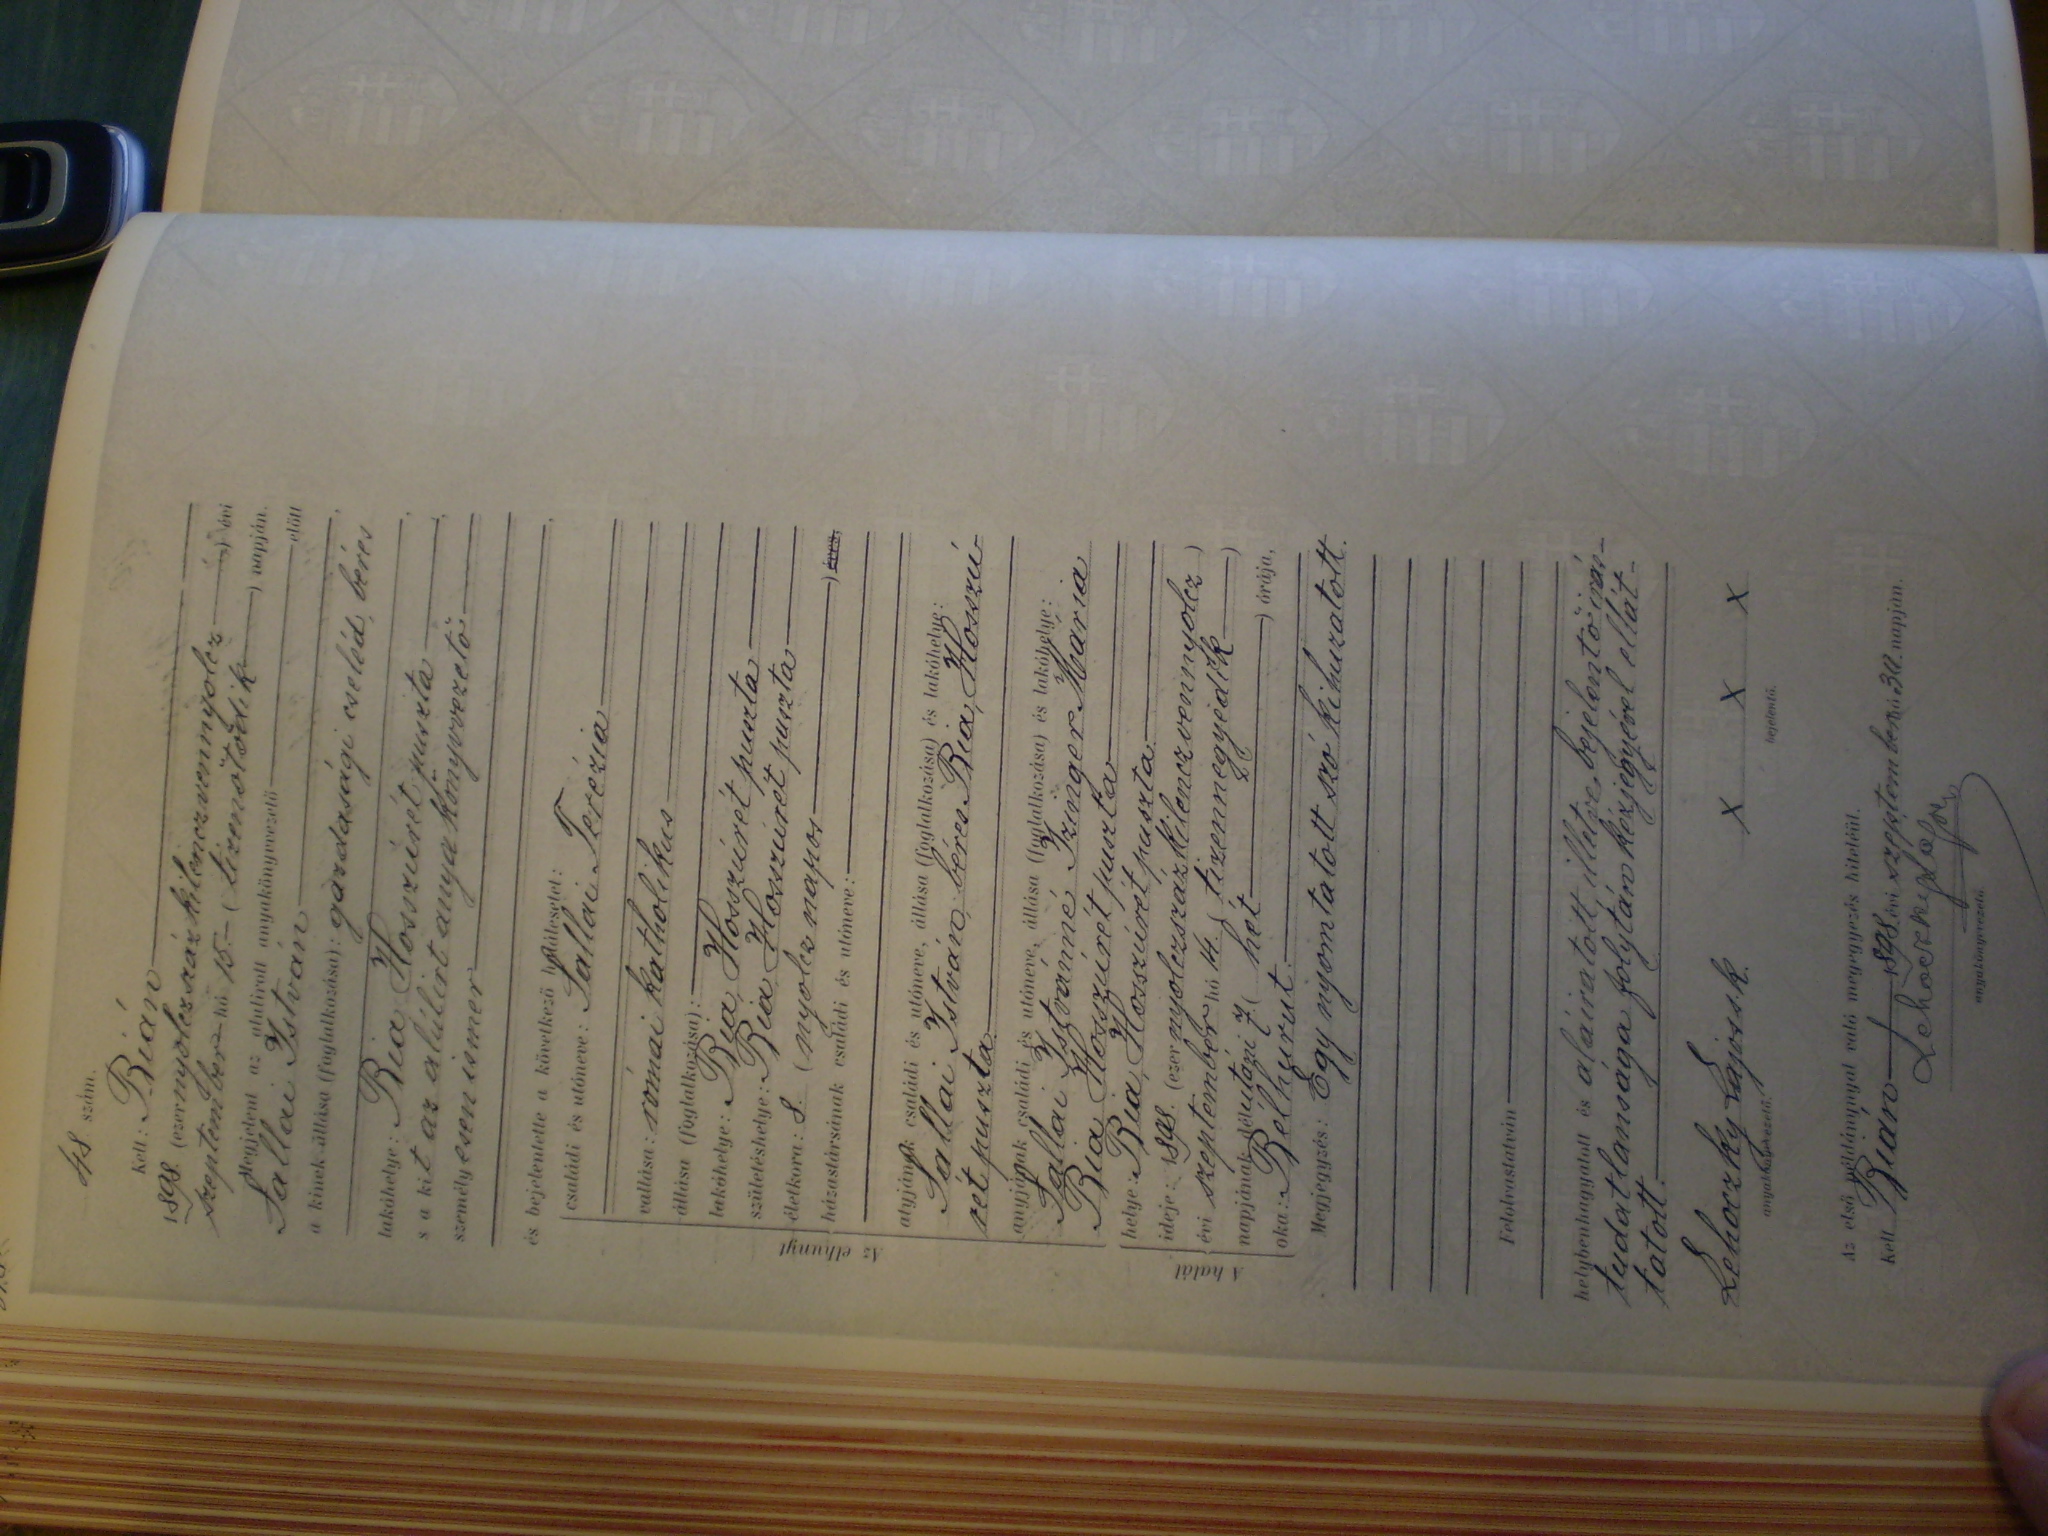 48. szám.
Kelt: Bián
1898. (ezernyolczszázkilenczvennyolcz) évi
szeptember hó 15. (tizenötödik) napján.
Megjelent az alulirott anyakönyvvezető előtt
Sallai István
a kinek állása (foglalkozása): gazdasági cseléd, béres
lakóhelye: Bia, Hosszúrét puszta,
s a kit az alúlírt anyakönyvvezető
személyesen ismer,
és bejelentette a következő halálesetet:
Az elhunyt
családi és utóneve: Sallai Terézia
vallása: római katholikus
állása (foglalkozása):
lakóhelye: Bia, Hosszúrét puszta
születéshelye: Bia, Hosszúrét puszta
életkora: 8. (nyolcz napos) éves,
házastársának családi és utóneve:
atyjának családi és utóneve, állása (foglalkozása) és lakóhelye:
Sallai István, béres, Bia, Hosszú-
rét puszta
anyjának családi és utóneve, állása (foglalkozása) és lakóhelye:
Sallai Istvánné Izinger Mária
Bia Hosszúrét puszta
A halál
helye: Bia, Hosszúrét puszta
ideje: 1898. (ezernyolczszázkilenczvennyolcz)
évi szeptember hó 14. (tizennegyedik)
napjának délutáni 7. (hét) órája,
oka: Bélhurut.
Megjegyzés: Egy nyomtatott szó kihuzatott.
Felolvastatván
helybenhagyatott és aláiratott, illetve, bejelentő irás-
tudatlansága folytán kézjegyével ellát-
tatott.
Lehoczky Lajos s.k. x x x
anyakönyvvezető. bejelentő.
Az első példánynyal való megegyezés hiteléül.
Kelt Bián 1898. évi szeptember hó 30. napján.
Lehoczky Lajos
anyakönyvvezető.